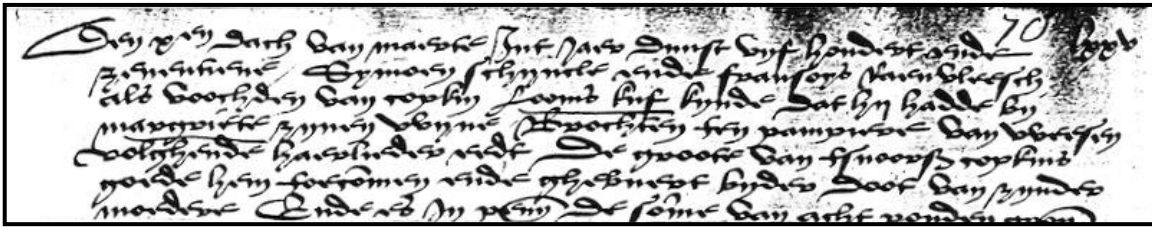 Den xen dach van maerte Int Jaer Duust vyf hondert ende 70 lxxv
zeventiene Symoen schyncle ende fransoys Raenvleesch
als voochden van copkin Looms kuf kynde dat hij hadde by
margriete zynen wyve Brochten ten pampiere van weesen
volghende haerlieder eedt De groote van tsnoorss copkins
goede hem toecomen ende ghebuert byder doot van zynder
moedere Ende es In penn de some van acht ponden groon